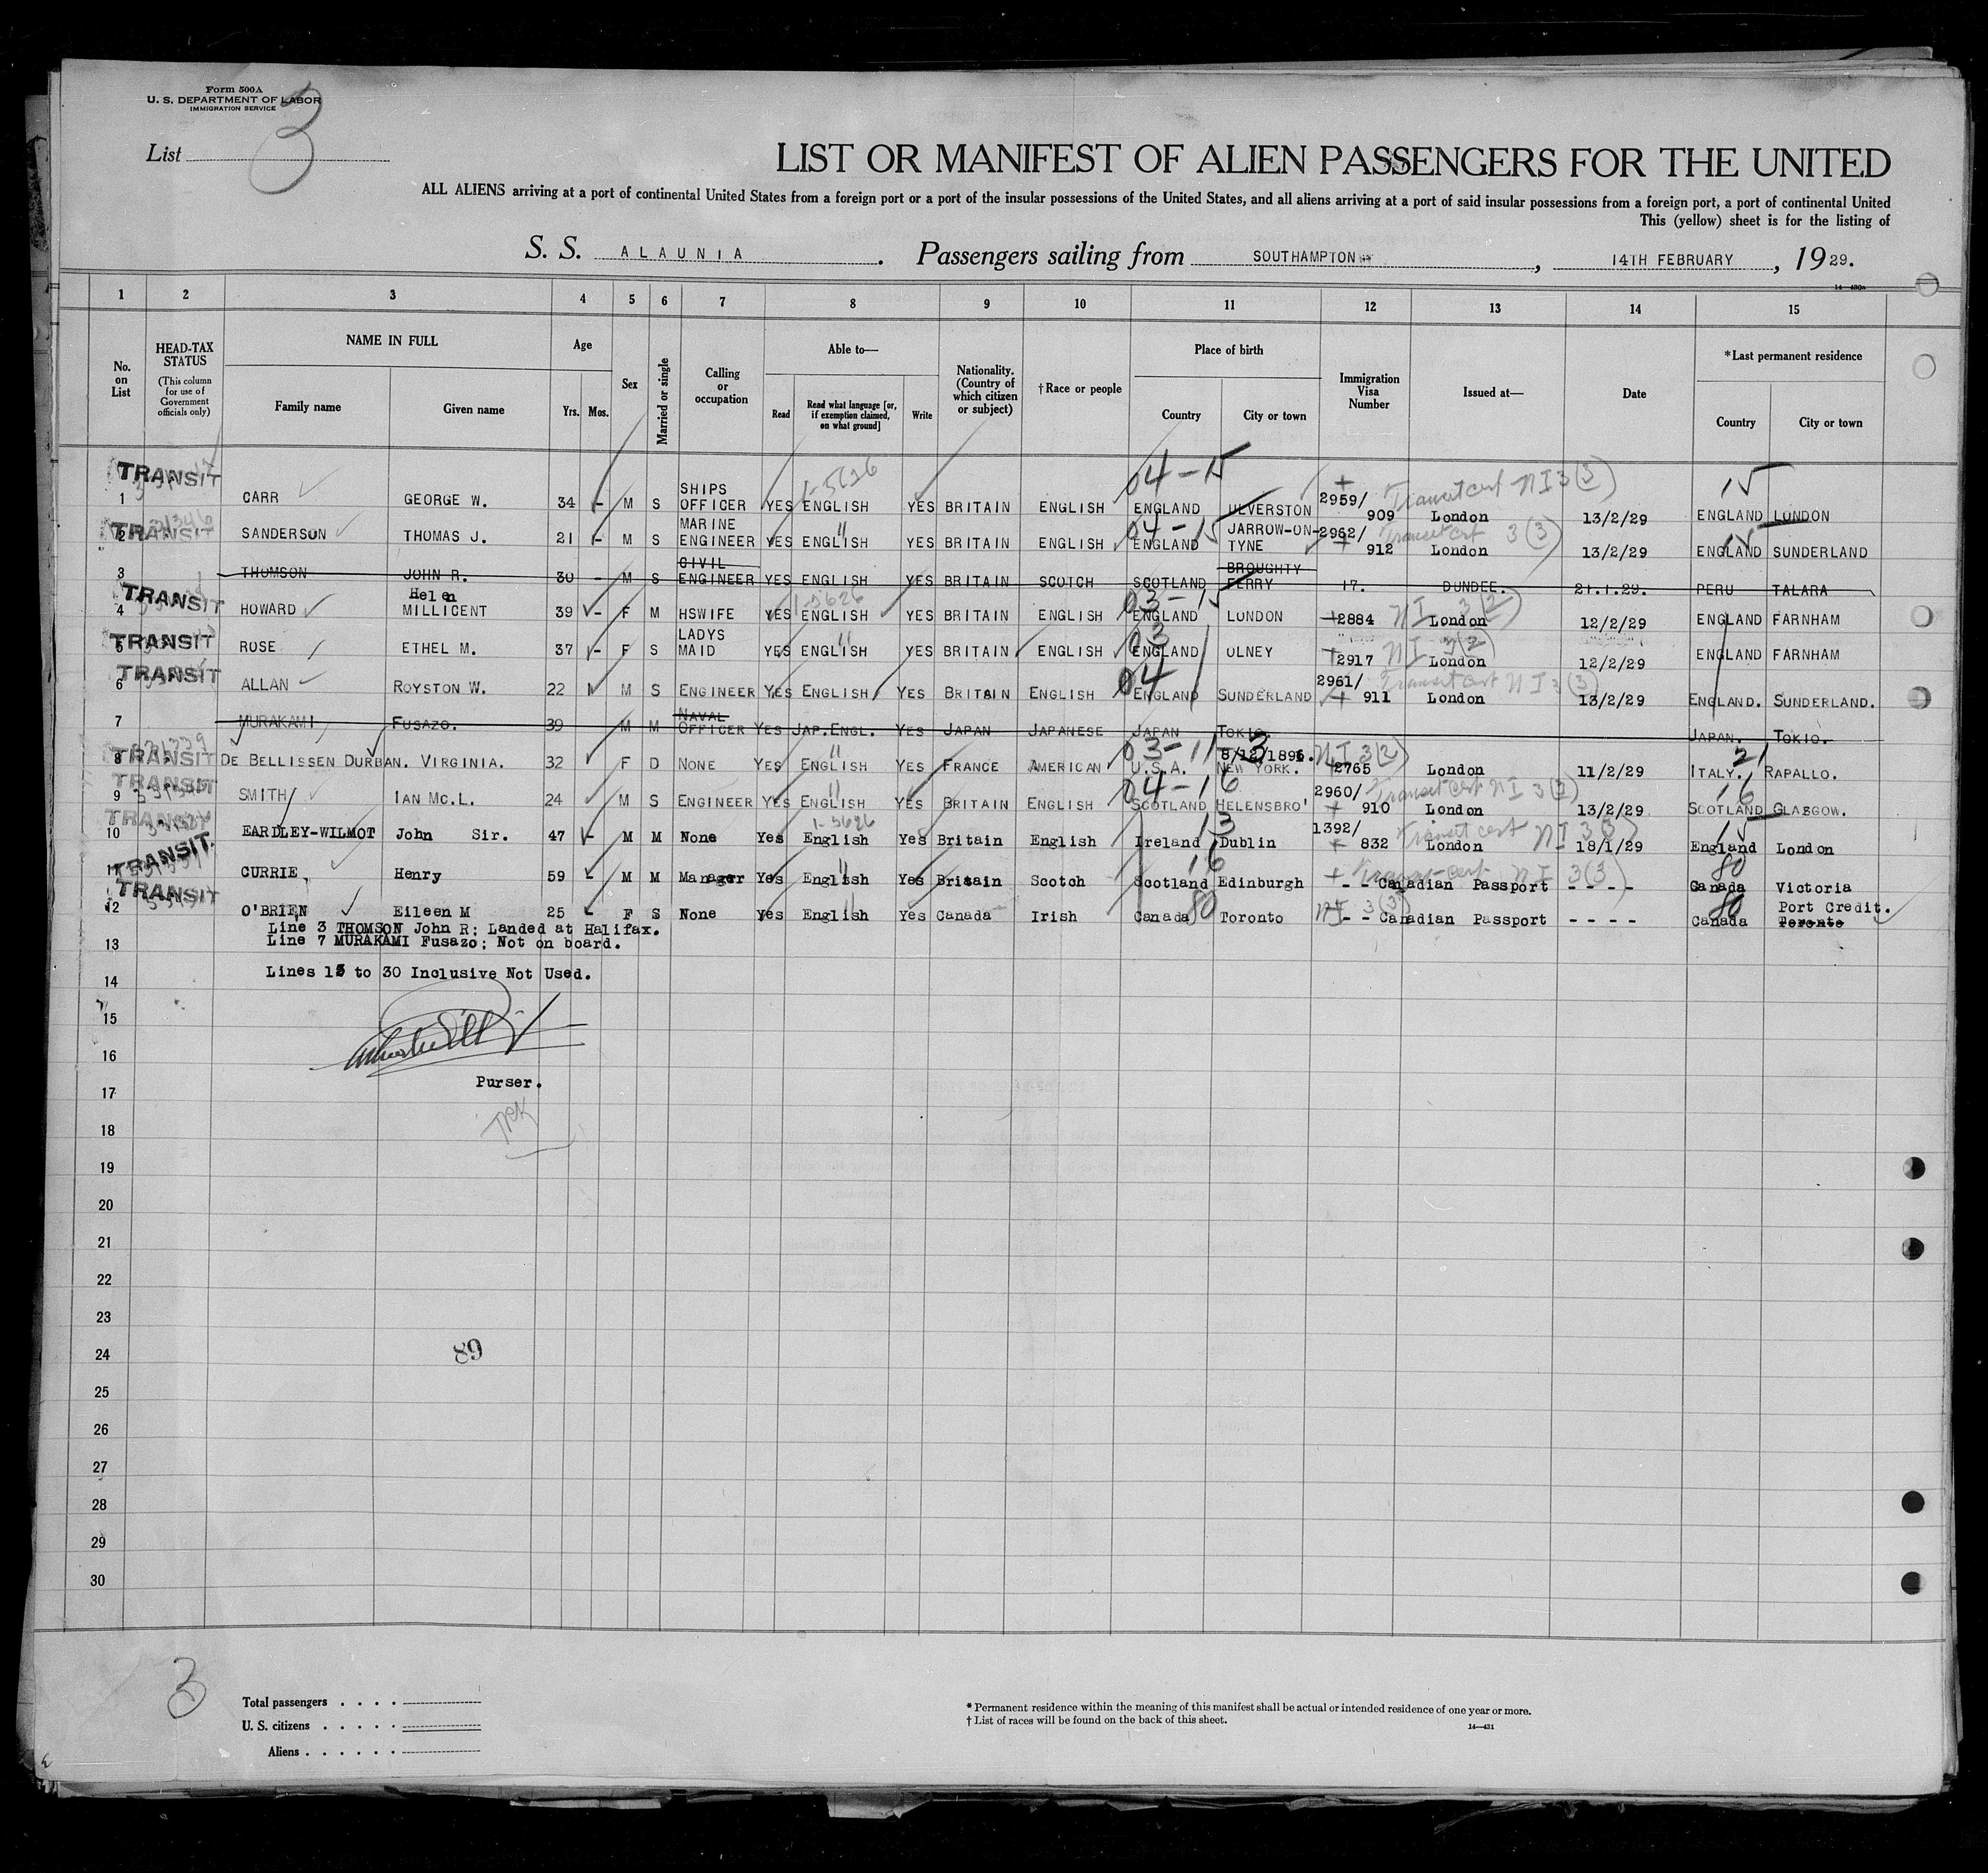 Form 500A
U. S. DEPARTMENT OF LABOR
IMMIGRATION SERVICE
List 3
LIST OR MANIFEST OF ALIEN PASSENGERS FOR THE UNITED
ALL ALIENS arriving at a port of continental United States from a foreign port or a port of the insular possessions of the United States, and all aliens arriving at a port of said insular possessions from a foreign port, a port of continental United
This (yellow) sheet is for the listing of
S. S. ALAUNIA. Passengers sailing from SOUTHAMPTON, 14TH FEBRUARY, 1929.
14—430a
1 2 3 4 5 6 7 8 9 10 11 12 13 14 15
No. on List
HEAD-TAX STATUS (This column for use of Government officials only)
NAME IN FULL
Family name Given name
Age
Yrs. Mos.
Sex
Married or single
Calling or occupation
Able to—
Read Read what language [or, if exemption claimed, on what ground] Write
Nationality. (Country of which citizen or subject)
†Race or people
Place of birth
Country City or town
Immigration Visa Number
Issued at—
Date
*Last permanent residence
Country City or town
TRANSIT 1-5626 04-15 + Transit cert NI 3(3) 15
1 CARR GEORGE W. 34 - M S SHIPS OFFICER YES ENGLISH YES BRITAIN ENGLISH ENGLAND ULVERSTON 2959/909 London 13/2/29 ENGLAND LONDON
TRANSIT " 04-15 Transit cert 3(3) 15
2 SANDERSON THOMAS J. 21 - M S MARINE ENGINEER YES ENGLISH YES BRITAIN ENGLISH ENGLAND JARROW-ON-TYNE 2962/912 London 13/2/29 ENGLAND SUNDERLAND
3 THOMSON JOHN R. 30 - M S CIVIL ENGINEER YES ENGLISH YES BRITAIN SCOTCH SCOTLAND BROUGHTY FERRY 17. DUNDEE. 21.1.29. PERU TALARA
TRANSIT 1-5626 03-15 NI 3(2)
4 HOWARD Helen MILLICENT 39 - F M HSWIFE YES ENGLISH YES BRITAIN ENGLISH ENGLAND LONDON +2884 London 12/2/29 ENGLAND FARNHAM
TRANSIT " 03 NI 3(2)
5 ROSE ETHEL M. 37 - F S LADYS MAID YES ENGLISH YES BRITAIN ENGLISH ENGLAND OLNEY +2917 London 12/2/29 ENGLAND FARNHAM
TRANSIT 04 Transit cert NI 3(3)
6 ALLAN ROYSTON W. 22 M S ENGINEER YES ENGLISH YES BRITAIN ENGLISH ENGLAND SUNDERLAND 2961/+ 911 London 13/2/29 ENGLAND. SUNDERLAND.
7 MURAKAMI FUSAZO. 39 M M NAVAL OFFICER YES JAP.ENGL. YES JAPAN JAPANESE JAPAN TOKIO. JAPAN. TOKIO.
TRANSIT " 03-11 3 NI 3(2) 21
8 DE BELLISSEN DURBAN. VIRGINIA. 32 F D NONE YES ENGLISH YES FRANCE AMERICAN U.S.A. 8/12/1896. NEW YORK. 2765 London 11/2/29 ITALY. RAPALLO.
TRANSIT " 04-16 Transit cert NI 3(3) 16
9 SMITH IAN MC.L. 24 M S ENGINEER YES ENGLISH YES BRITAIN ENGLISH SCOTLAND HELENSBRO' 2960/+ 910 London 13/2/29 SCOTLAND GLASGOW.
TRANSIT 1-5626 13 Transit cert NI 3(3) 15
10 EARDLEY-WILMOT John Sir. 47 - M M None Yes English Yes Britain English Ireland Dublin 1392/+ 832 London 18/1/29 England London
TRANSIT. " 16 + Transit cert NI 3(3) 80
11 CURRIE, Henry 59 - M M Manager Yes English Yes Britain Scotch Scotland Edinburgh -- Canadian Passport ---- Canada Victoria
TRANSIT " 80 NI 3(3) 80
12 O'BRIEN Eileen M 25 - F S None Yes English Yes Canada Irish Canada Toronto -- Canadian Passport ---- Canada Port Credit. Toronto
Line 3 THOMSON John R; Landed at Halifax.
13 Line 7 MURAKAMI Fusazo; Not on board.
Lines 13 to 30 Inclusive Not Used.
14
15
16
Purser.
17
18
19
20
21
22
23
24 89
25
26
27
28
29
30
3
Total passengers . . . .
U. S. citizens . . . . .
Aliens . . . . . .
* Permanent residence within the meaning of this manifest shall be actual or intended residence of one year or more.
† List of races will be found on the back of this sheet.
14—431